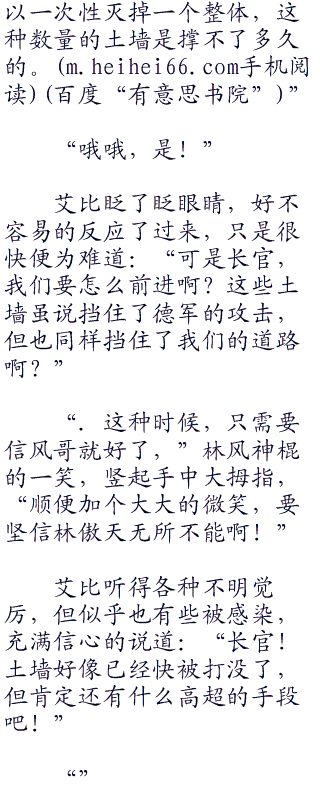 以一次性灭掉一个整体，这
种数量的土墙是撑不了多久
的。(m.heihei66.com手机阅
读)(百度“有意思书院”)”
“哦哦，是！”
艾比眨了眨眼睛，好不
容易的反应了过来，只是很
快便为难道：“可是长官，
我们要怎么前进啊？这些土
墙虽说挡住了德军的攻击，
但也同样挡住了我们的道路
啊？”
“．这种时候，只需要
信风哥就好了，”林风神棍
的一笑，竖起手中大拇指，
“顺便加个大大的微笑，要
坚信林傲天无所不能啊！”
艾比听得各种不明觉
厉，但似乎也有些被感染，
充满信心的说道：“长官！
土墙好像已经快被打没了，
但肯定还有什么高超的手段
吧！”
“”